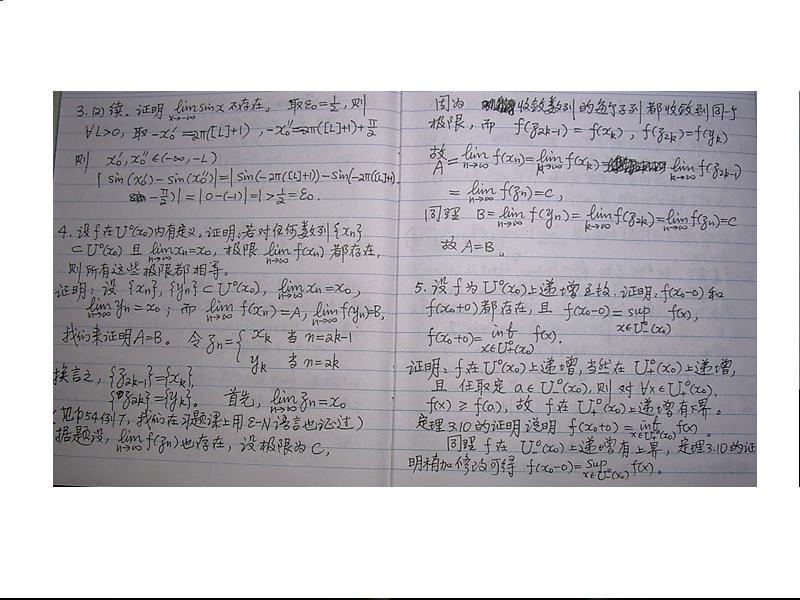 3.(2)续. 证明 lim_{x→-∞} sinx 不存在。 取ε₀=1/2, 则
∀L>0, 取 -x₀′=2π([L]+1), -x₀″=2π([L]+1)+π/2
则 x₀′,x₀″∈(-∞,-L)
|sin(x₀′)-sin(x₀″)|=|sin(-2π([L]+1))-sin(-2π([L]+1)
-π/2)|=|0-(-1)|=1>1/2=ε₀.
4. 设f在U°(x₀)内有定义. 证明:若对任何数列{xn}
⊂U°(x₀) 且 lim_{n→∞} xn=x₀, 极限 lim_{n→∞} f(xn) 都存在,
则所有这些极限都相等。
证明: 设 {xn}, {yn}⊂U°(x₀), lim_{n→∞} xn=x₀,
lim_{n→∞} yn=x₀; 而 lim_{n→∞} f(xn)=A, lim_{n→∞} f(yn)=B,
我们来证明A=B。 令 ʒn={ xk 当 n=2k-1
yk 当 n=2k
换言之, {ʒ2k-1}={xk},
{ʒ2k}={yk}。 首先, lim_{n→∞} ʒn=x₀
(见P54例7, 我们在习题课上用ε-N语言也证过)
据题设, lim_{n→∞} f(ʒn)也存在, 设极限为C,
因为 收敛数列的每个子列都收敛到同一个
极限, 而 f(ʒ2k-1)=f(xk), f(ʒ2k)=f(yk)
故 A=lim_{n→∞} f(xn)=lim_{k→∞} f(xk)= lim_{k→∞} f(ʒ2k-1)
=lim_{n→∞} f(ʒn)=C,
同理 B=lim_{n→∞} f(yn)=lim_{k→∞} f(ʒ2k)=lim_{n→∞} f(ʒn)=C
故 A=B。
5. 设f为U°(x₀)上递增函数. 证明: f(x₀-0)和
f(x₀+0)都存在, 且 f(x₀-0)=sup_{x∈U°₋(x₀)} f(x),
f(x₀+0)=inf_{x∈U°₊(x₀)} f(x).
证明: f在U°(x₀)上递增,当然在U°₊(x₀)上递增,
且 任取定 a∈U°₋(x₀), 则 对 ∀x∈U°₊(x₀),
f(x)≥f(a), 故 f在U°₊(x₀)上递增有下界。
定理3.10的证明说明 f(x₀+0)=inf_{x∈U°₊(x₀)} f(x)。
同理 f在 U°₋(x₀)上递增有上界, 定理3.10的证
明稍加修改可得 f(x₀-0)=sup_{x∈U°₋(x₀)} f(x)。